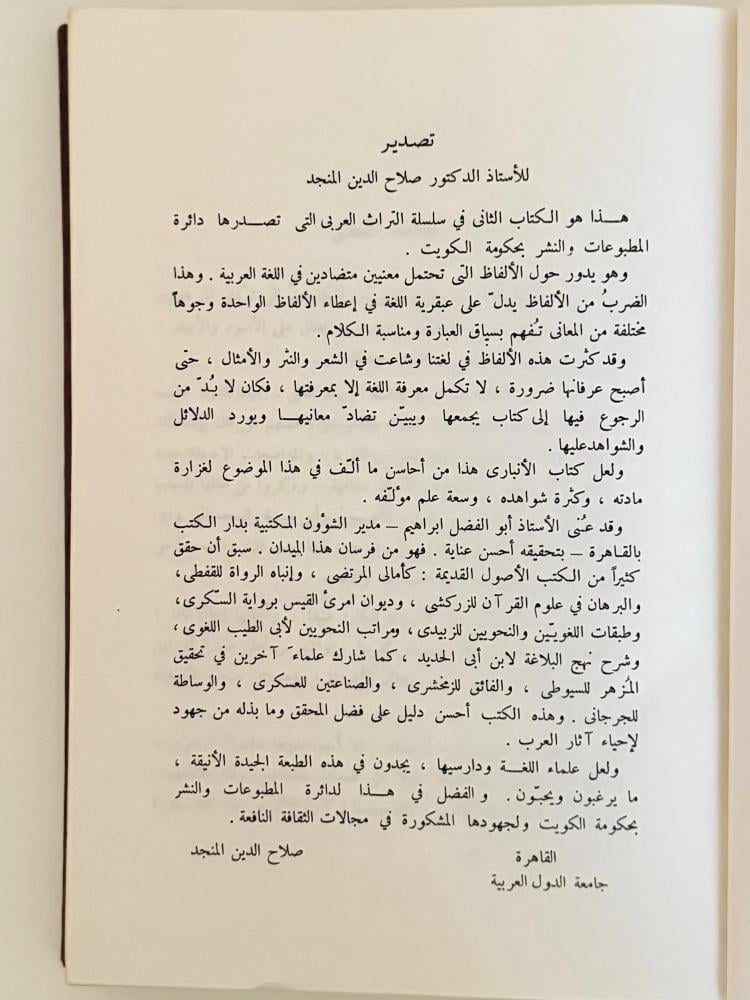 تصدير
للأستاذ الدكتور صلاح الدين المنجد
هـــذا هو الكتاب الثانى في سلسلة التراث العربى التى تصـــدرها دائرة
المطبوعات والنشر بحكومة الكويت .
وهو يدور حول الألفاظ التى تحتمل معنيين متضادين في اللغة العربية . وهذا
الضربُ من الألفاظ يدلّ على عبقرية اللغة في إعطاء الألفاظ الواحدة وجوهاً
مختلفة من المعانى تُفهم بسياق العبارة ومناسبة الكلام .
وقد كثرت هذه الألفاظ في لغتنا وشاعت في الشعر والنثر والأمثال ، حتى
أصبح عرفانها ضرورة ، لا تكمل معرفة اللغة إلا بمعرفتها ، فكان لا بُدّ من
الرجوع فيها إلى كتاب يجمعها ويبيّن تضادّ معانيهـــا ويورد الدلائل
والشواهد عليها .
ولعل كتاب الأنبارى هذا من أحاسن ما ألّف في هذا الموضوع لغزارة
مادته ، وكثرة شواهده ، وسعة علم مؤلّفه .
وقد عُنى الأستاذ أبو الفضل ابراهيم – مدير الشؤون المكتبية بدار الكتب
بالقاهرة – بتحقيقه أحسن عناية . فهو من فرسان هذا الميدان . سبق أن حقق
كثيراً من الكتب الأصول القديمة : كأمالى المرتضى ، وإنباه الرواة للقفطى،
والبرهان في علوم القرآن للزركشى ، وديوان امرئ القيس برواية السّكرى،
وطبقات اللغويّين والنحويين للزبيدى، ومراتب النحويين لأبى الطيب اللغوى،
وشرح نهج البلاغة لابن أبى الحديد ، كما شارك علماءَ آخرين في تحقيق
المُزهر للسيوطى ، والفائق للزمخشرى ، والصناعتين للعسكرى ، والوساطة
للجرجانى . وهذه الكتب أحسن دليل على فضل المحقق وما بذله من جهود
لإحياء آثار العرب .
ولعل علماء اللغـــة ودارسيها ، يجدون في هذه الطبعة الجيدة الأنيقة ،
ما يرغبون ويحبّون . والفضل في هـــذا لدائرة المطبوعات والنشر
بحكومة الكويت ولجهودها المشكورة في مجالات الثقافة النافعة .
القاهرة صلاح الدين المنجد
جامعة الدول العربية